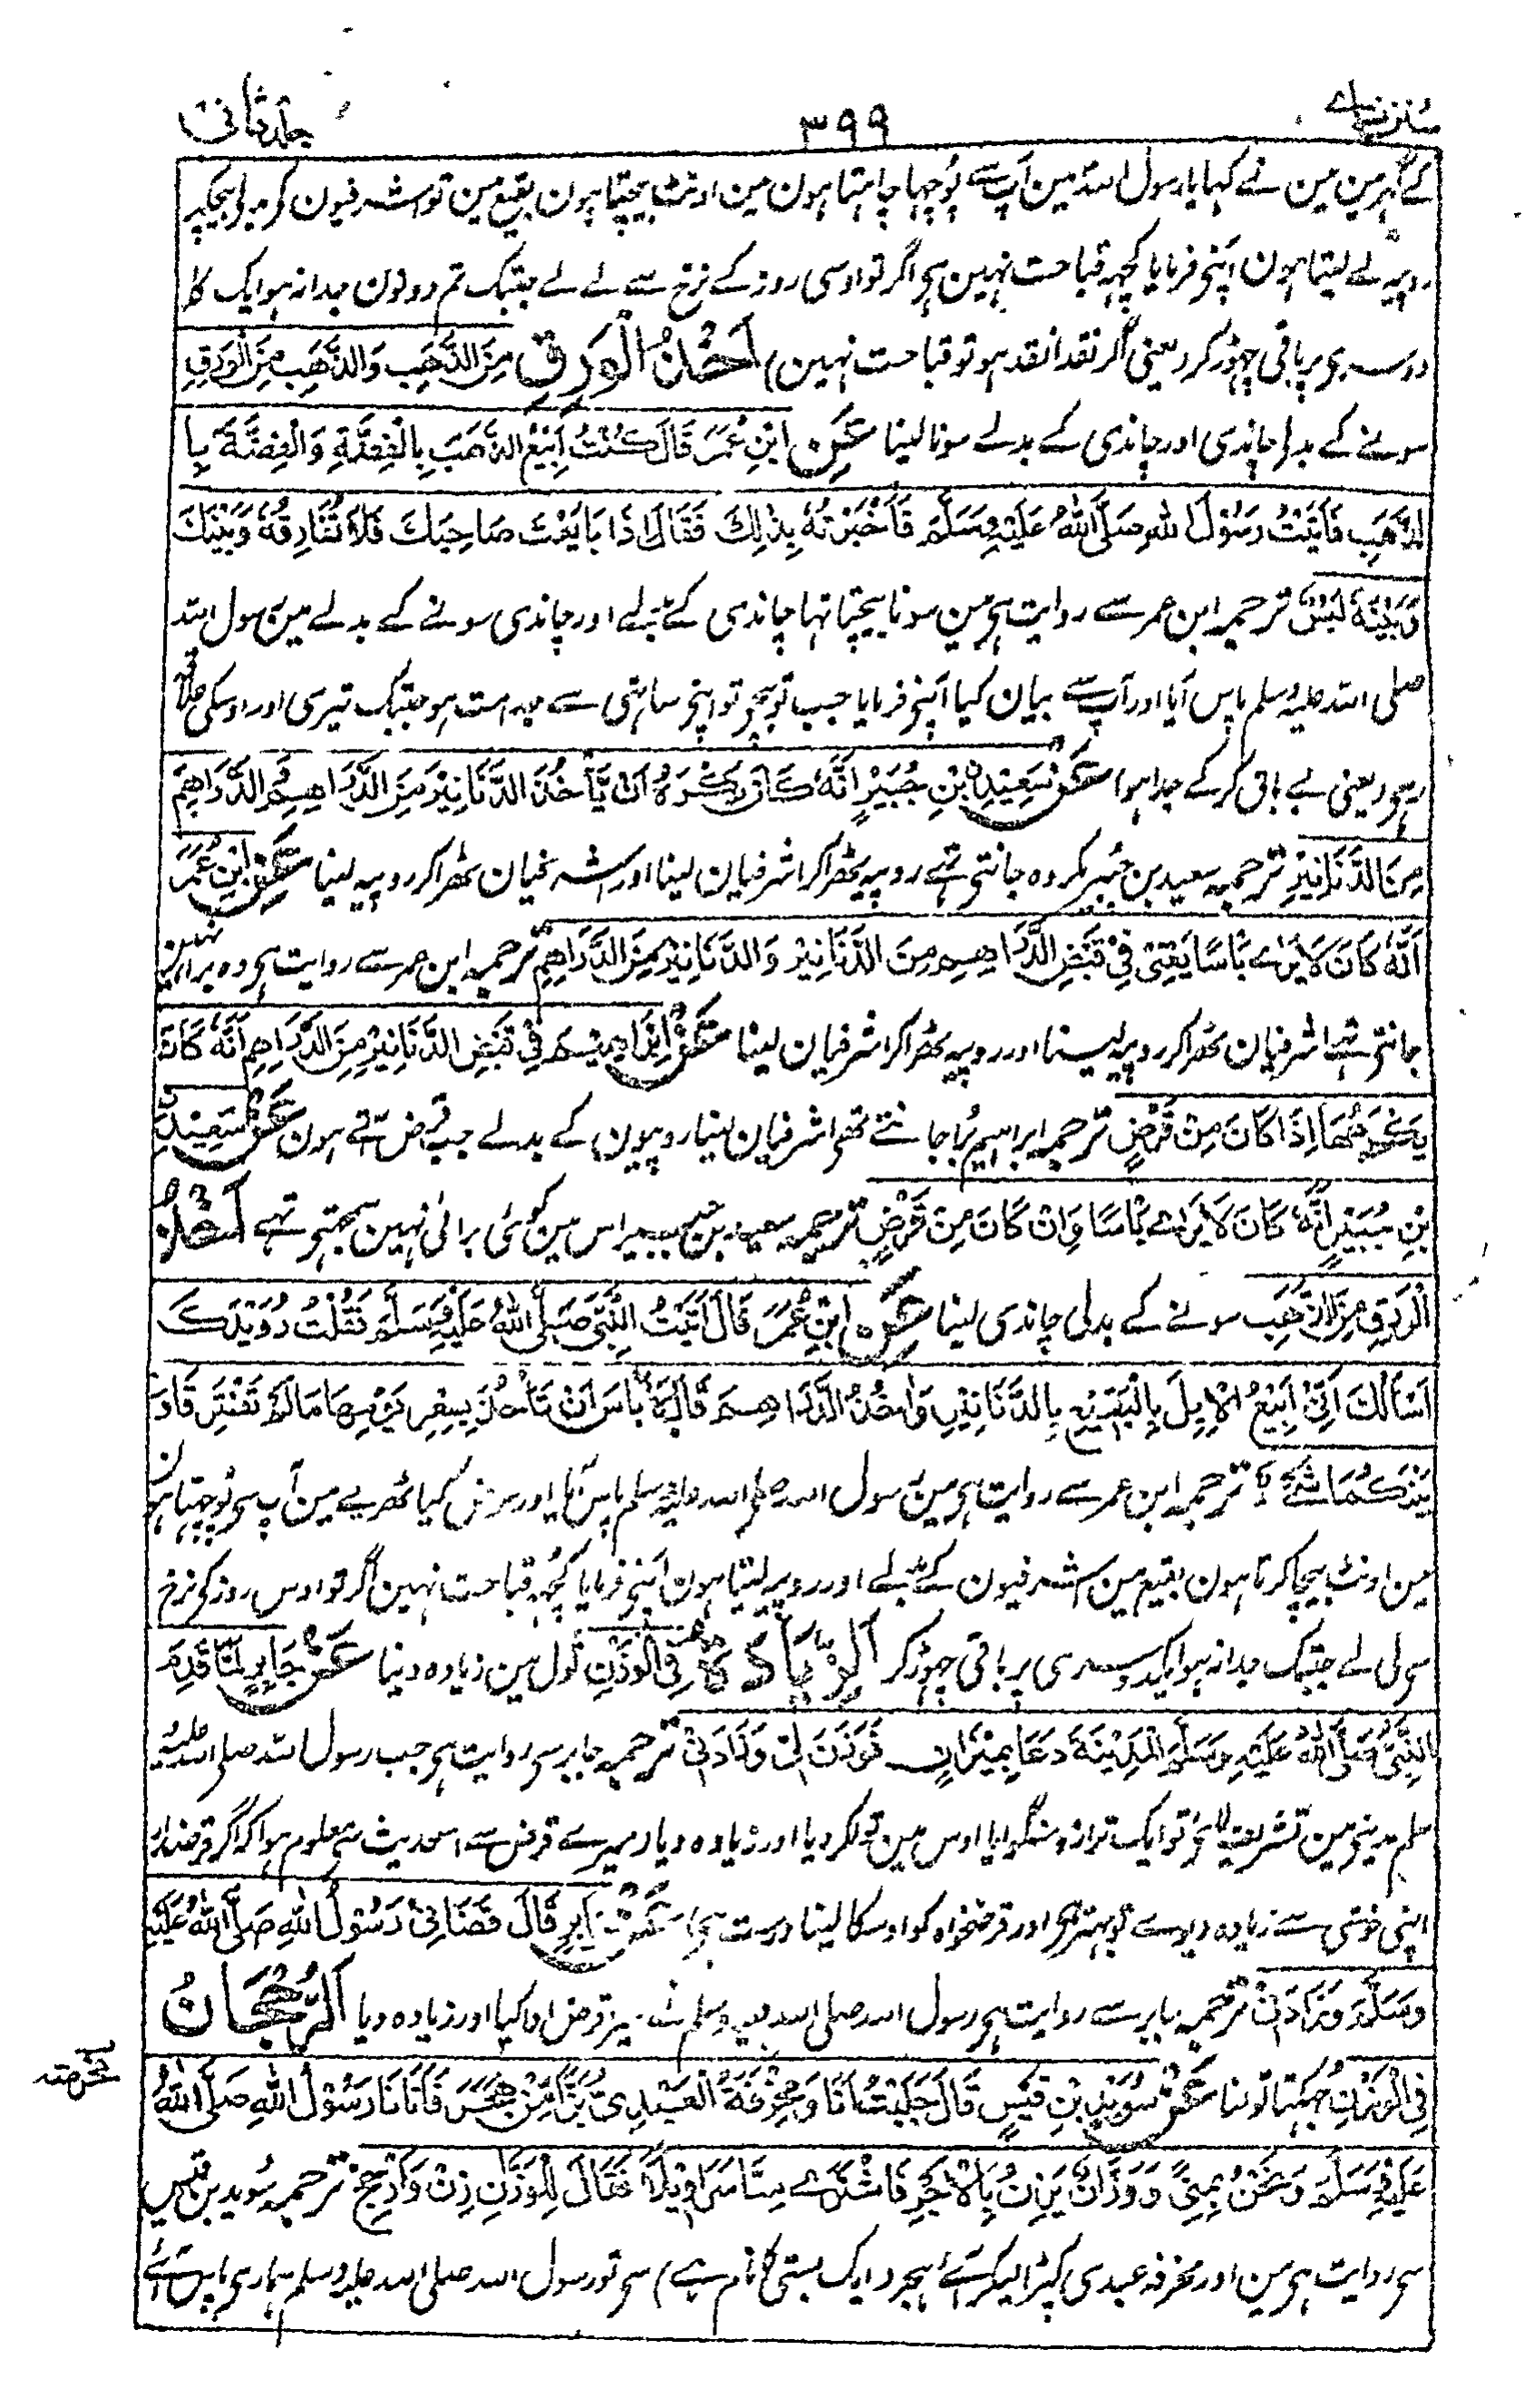 سنن نسائے ۳۹۹ جلد ثانی
کے گہر مین مین نے کہا یا رسول اللہ مین آپ سے پوچہا چاہتا ہون مین اونٹ بیچتا ہون بقیع مین تو اشرفیون کو بیچکر
روپیہ لے لیتا ہون اپنے فرمایا کچہہ قباحت نہین ہی اگر تو اوسی روز کے نرخ سے لے لے جبتک تم دونون جدا نہ ہو ایک کا
دوسری پر باقی چہوڑ کر (یعنی اگر نقدا نقد ہو تو قباحت نہین) اَخْذُ الْوَرِقِ مِنَ الذَّهَبِ وَالذَّهَبِ مِنَ الْوَرِقِ
سونے کے بدلے چاندی اور چاندی کے بدلے سونا لینا عَنِ ابْنِ عُمَرَ قَالَ كُنْتُ اَبِيْعُ الذَّهَبَ بِالْفِضَّةِ وَالْفِضَّةَ بِا
لذَّهَبِ فَاَتَيْتُ رَسُوْلَ اللهِ صَلَّى اللهُ عَلَيْهِ وَسَلَّمَ فَاَخْبَرْتُهُ بِذٰلِكَ فَقَالَ اِذَا بَايَعْتَ صَاحِبَكَ فَلَا تُفَارِقْهُ وَبَيْنَكَ
وَبَيْنَهُ لَبْسٌ ترجمہ ابن عمر سے روایت ہی مین سونا بیچتا تہا چاندی کے بدلے اور چاندی سونے کے بدلے مین رسول اللہ
صلی اللہ علیہ وسلم پاس آیا اور آپ سے بیان کیا اپنے فرمایا جب تو بیچی تو اپنے ساتہی سے جدا مت ہو جبتک تیری اور اوسکی علاقہ
رہی (یعنی بے باقی کر کے جدا ہو) عَنْ سَعِيْدِ بْنِ جُبَيْرٍ اَنَّهُ كَانَ يَكْرَهُ اَنْ يَّأْخُذَ الدَّنَانِيْرَ مِنَ الدَّرَاهِمِ وَالدَّرَاهِمَ
مِنَ الدَّنَانِيْرِ ترجمہ سعید بن جبیر مکروہ جانتی تہے روپیہ ٹھرا کر اشرفیان لینا اور اشرفیان ٹھرا کر روپیہ لینا عَنِ ابْنِ عُمَرَ
اَنَّهُ كَانَ لَا يَرٰى بَأْسًا يَعْنِيْ فِيْ قَبْضِ الدَّرَاهِمِ مِنَ الدَّنَانِيْرِ وَالدَّنَانِيْرِ مِنَ الدَّرَاهِمِ ترجمہ ابن عمر سے روایت ہی وہ برا نہین
جانتی تہے اشرفیان ٹھرا کر روپیہ لینا اور روپیہ ٹھرا کر اشرفیان لینا عَنْ اِبْرَاهِيْمَ فِيْ قَبْضِ الدَّنَانِيْرِ مِنَ الدَّرَاهِمِ اَنَّهُ كَانَ
يَكْرَهُهَا اِذَا كَانَ مِنْ قَرْضٍ ترجمہ ابراہیم برا جانتے تھی اشرفیان لینا روپیون کے بدلے جب قرض سے ہون عَنْ سَعِيْدِ
بْنِ جُبَيْرٍ اَنَّهُ كَانَ لَا يَرٰى بَأْسًا وَاِنْ كَانَ مِنْ قَرْضٍ ترجمہ سعید بن جبیر اس مین کوئی برائی نہین سمجہتی تہے اَخْذُ
الْوَرِقِ مِنَ الذَّهَبِ سونے کے بدلی چاندی لینا عَنِ ابْنِ عُمَرَ قَالَ اَتَيْتُ النَّبِيَّ صَلَّى اللهُ عَلَيْهِ وَسَلَّمَ فَقُلْتُ رُوَيْدَكَ
اَسْاَلُكَ اِنِّيْ اَبِيْعُ الْاِبِلَ بِالْبَقِيْعِ بِالدَّنَانِيْرِ وَاٰخُذُ الدَّرَاهِمَ قَالَ لَا بَأْسَ اَنْ تَأْخُذَ بِسِعْرِ يَوْمِهَا مَا لَمْ تَفْتَرِقَا وَ
بَيْنَكُمَا شَيْءٌ ترجمہ ابن عمر سے روایت ہی مین رسول اللہ صلی اللہ علیہ وسلم پاس آیا اور عرض کیا ٹھریے مین آپ سی پوچہتا ہون
مین اونٹ بیچا کرتا ہون بقیع مین اشرفیون کے بدلے اور روپیہ لیتا ہون اپنے فرمایا کچہہ قباحت نہین اگر تو اوس روز کی نرخ
سی لے لے جبتک جدا نہ ہو ایک دوسری پر باقی چہوڑ کر اَلزِّيَادَةُ فِي الْوَزْنِ تول مین زیادہ دینا عَنْ جَابِرٍ لَمَّا قَدِمَ
النَّبِيُّ صَلَّى اللهُ عَلَيْهِ وَسَلَّمَ الْمَدِيْنَةَ دَعَا بِمِيْزَانٍ فَوَزَنَ لِيْ وَزَادَنِيْ ترجمہ جابر سی روایت ہی جب رسول اللہ صلی اللہ علیہ
سلم مدینی مین تشریف لائی تو ایک ترازو منگوایا اوس مین تولکر دیا اور زیادہ دیا (میرے قرض سے اسحدیث سی معلوم ہوا کہ اگر قرضدار
اپنی خوشی سے زیادہ دیوے تو بہتر ہی اور قرضخواہ کو اوسکا لینا درست ہی) عَنْ جَابِرٍ قَالَ قَضَانِيْ رَسُوْلُ اللهِ صَلَّى اللهُ عَلَيْهِ
وَسَلَّمَ وَزَادَنِيْ ترجمہ جابر سے روایت ہی رسول اللہ صلی اللہ علیہ وسلم نے میرا قرض ادا کیا اور زیادہ دیا اَلرُّجْحَانُ
فِي الْوَزْنِ جہکتا تولنا عَنْ سُوَيْدِ بْنِ قَيْسٍ قَالَ جَلَبْتُ اَنَا وَمَخْرَفَةُ الْعَبْدِيُّ بَزًّا مِّنْ هَجَرَ فَاَتَانَا رَسُوْلُ اللهِ صَلَّى اللهُ
عَلَيْهِ وَسَلَّمَ وَنَحْنُ بِمِنًى وَوَزَّانٌ يَزِنُ بِالْاَجْرِ فَاشْتَرٰى مِنَّا سَرَاوِيْلَ فَقَالَ لِلْوَزَّانِ زِنْ وَاَرْجِحْ ترجمہ سوید بن قیس
سی روایت ہی مین اور مخرفہ عبدی کپڑا لیکر آئے ہجر (ایک بستی کا نام ہے) سی تو رسول اللہ صلی اللہ علیہ وسلم ہماری پاس آئے